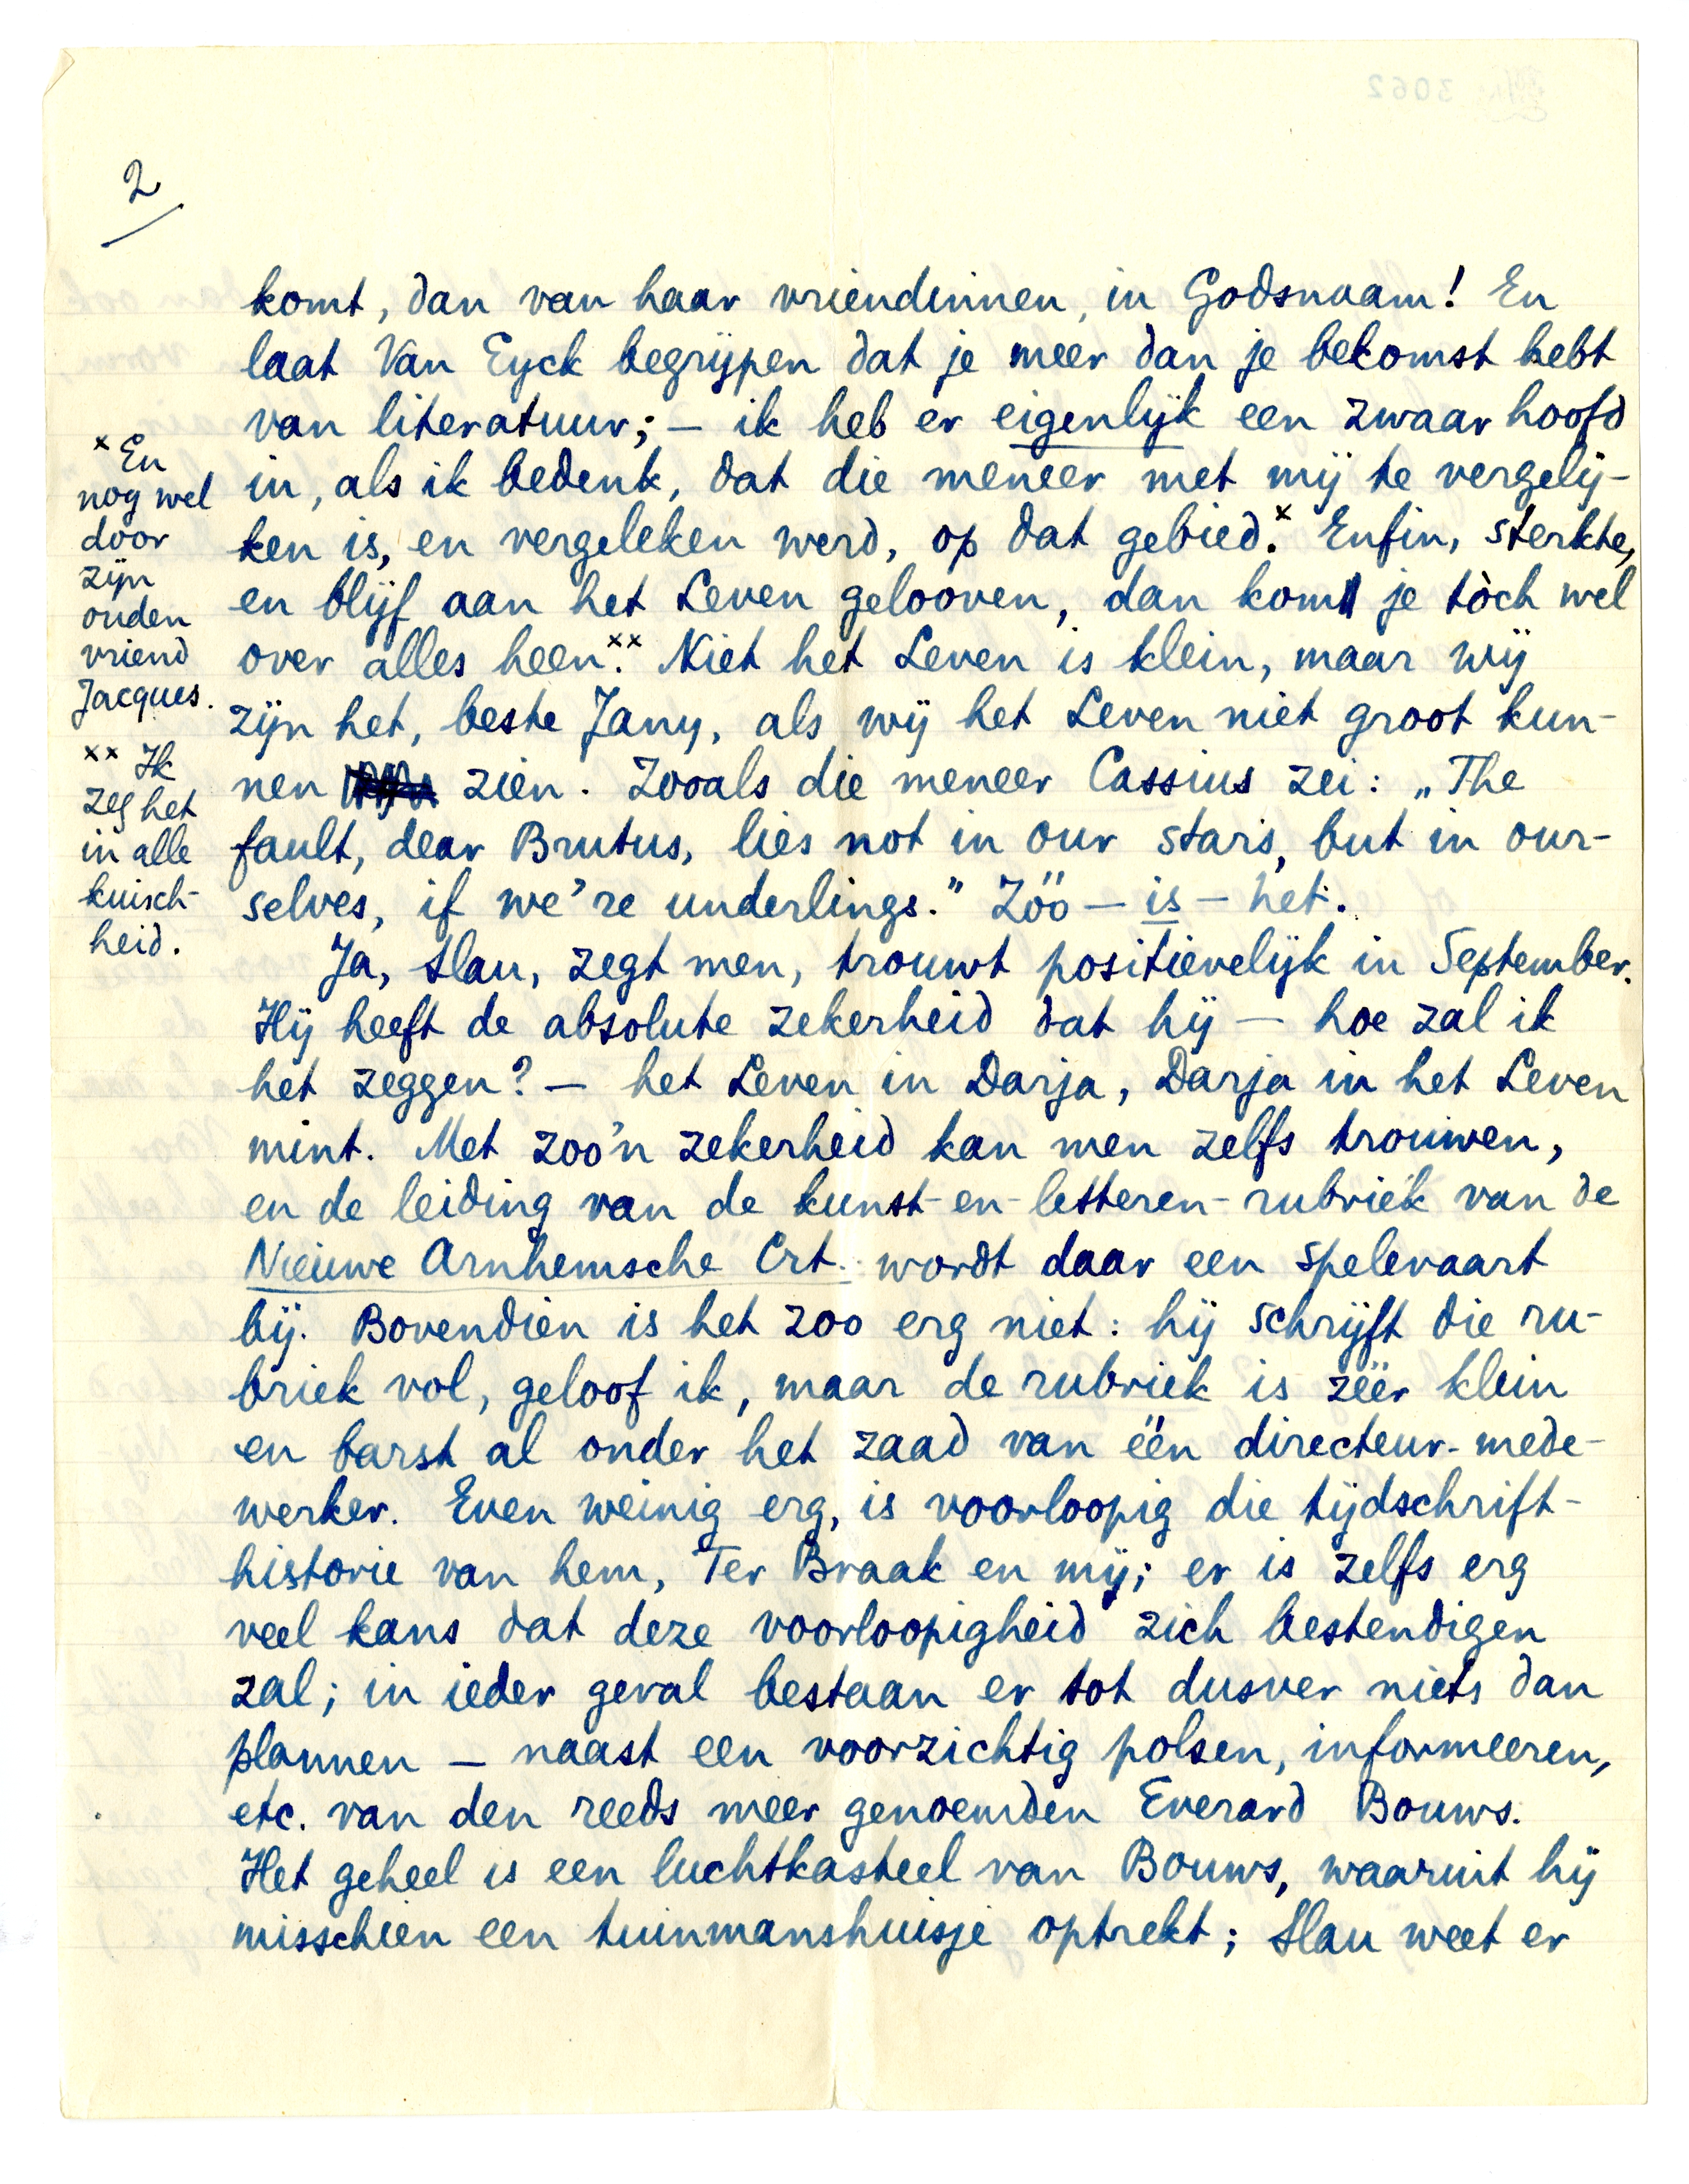 2
komt, dan van haar vriendinnen, in Godsnaam! En
laat Van Eyck begrijpen dat je meer dan je bekomst hebt
van literatuur; — ik heb er eigenlijk een zwaar hoofd
in, als ik bedenk, dat die meneer met mij te vergelij-
ken is, en vergeleken werd, op dat gebied.x Enfin, sterkte,
en blijf aan het Leven gelooven, dan kom je tòch wel
over alles heen.xx Niet het Leven is klein, maar wij
zijn het, beste Jany, als wij het Leven niet groot kun-
nen zien. Zooals die meneer Cassius zei: „The
fault, dear Brutus, lies not in our stars, but in our-
selves, if we're underlings." Zóó — is — het.
Ja, Slau, zegt men, trouwt positievelijk in September.
Hij heeft de absolute zekerheid dat hij — hoe zal ik
het zeggen? — het Leven in Darja, Darja in het Leven
mint. Met zoo'n zekerheid kan men zelfs trouwen,
en de leiding van de kunst-en-letteren-rubriek van de
Nieuwe Arnhemsche Crt. wordt daar een spelevaart
bij. Bovendien is het zoo erg niet: hij schrijft die ru-
briek vol, geloof ik, maar de rubriek is zéér klein
en barst al onder het zaad van één directeur-mede-
werker. Even weinig erg, is voorloopig die tijdschrift-
historie van hem, Ter Braak en mij; er is zelfs erg
veel kans dat deze voorloopigheid zich bestendigen
zal; in ieder geval bestaan er tot dusver niets dan
plannen — naast een voorzichtig polsen, informeeren,
etc. van den reeds meer genoemden Everard Bouws.
Het geheel is een luchtkasteel van Bouws, waaruit hij
misschien een tuinmanshuisje optrekt; Slau weet er
x En
nog wel
door
zijn
ouden
vriend
Jacques.
xx Ik
zeg het
in alle
kuisch-
heid.
3062